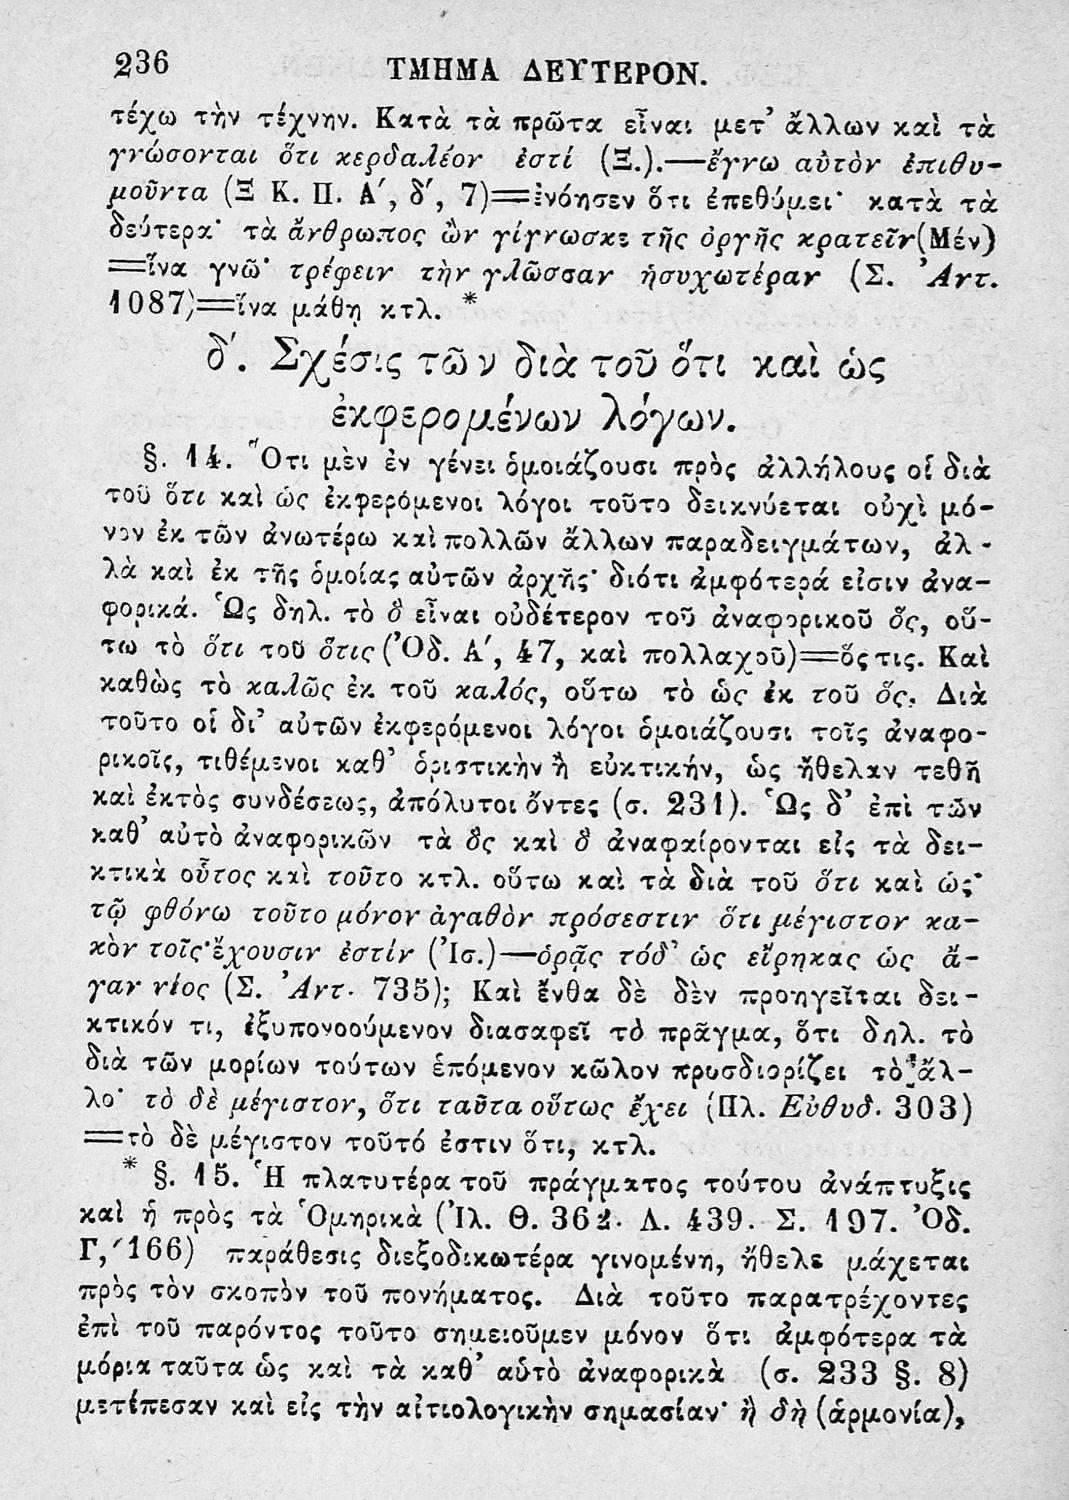 236 ΤΜΗΜΑ ΔΕΥΤΕΡΟΝ.
τέχω τὴν τέχνην. Κατὰ τὰ πρῶτα εἶναι μετ’ ἄλλων καὶ τὰ
γνώσονται ὅτι κερδαλέον ἐστί (Ξ.).—ἔγνω αὐτὸν ἐπιθυ-
μοῦντα (Ξ Κ. Π. Α΄, δ΄, 7)=ἐνόησεν ὅτι ἐπεθύμει· κατὰ τὰ
δεύτερα· τὰ ἄνθρωπος ὢν γίγνωσκε τῆς ὀργῆς κρατεῖν (Μέν)
=ἵνα γνῶ· τρέφειν τὴν γλῶσσαν ἡσυχωτέραν (Σ. Ἀντ.
1087)=ἵνα μάθῃ κτλ. *
δ΄. Σχέσις τῶν διὰ τοῦ ὅτι καὶ ὡς
ἐκφερομένων λόγων.
§. 14. Ὅτι μὲν ἐν γένει ὁμοιάζουσι πρὸς ἀλλήλους οἱ διὰ
τοῦ ὅτι καὶ ὡς ἐκφερόμενοι λόγοι τοῦτο δεικνύεται οὐχὶ μό-
νον ἐκ τῶν ἀνωτέρω καὶ πολλῶν ἄλλων παραδειγμάτων, ἀλ-
λὰ καὶ ἐκ τῆς ὁμοίας αὐτῶν ἀρχῆς· διότι ἀμφότερά εἰσιν ἀνα-
φορικά. Ὡς δηλ. τὸ ὃ εἶναι οὐδέτερον τοῦ ἀναφορικοῦ ὅς, οὕ-
τω τὸ ὅτι τοῦ ὅτις (Ὀδ. Α΄, 47, καὶ πολλαχοῦ)=ὅςτις. Καὶ
καθὼς τὸ καλῶς ἐκ τοῦ καλός, οὕτω τὸ ὡς ἐκ τοῦ ὅς. Διὰ
τοῦτο οἱ δι’ αὐτῶν ἐκφερόμενοι λόγοι ὁμοιάζουσι τοῖς ἀναφο-
ρικοῖς, τιθέμενοι καθ’ ὁριστικὴν ἢ εὐκτικήν, ὡς ἤθελαν τεθῆ
καὶ ἐκτὸς συνδέσεως, ἀπόλυτοι ὄντες (σ. 231). Ὡς δ’ ἐπὶ τῶν
καθ’ αὑτὸ ἀναφορικῶν τὰ ὃς καὶ ὃ ἀναφαίρονται εἰς τὰ δει-
κτικὰ οὗτος καὶ τοῦτο κτλ. οὕτω καὶ τὰ διὰ τοῦ ὅτι καὶ ὡς·
τῷ φθόνω τοῦτο μόνον ἀγαθὸν πρόσεστιν ὅτι μέγιστον κα-
κὸν τοῖς ἔχουσιν ἐστίν (Ἰσ.)—ὁρᾷς τόδ’ ὡς εἴρηκας ὡς ἄ-
γαν νέος (Σ. Ἀντ. 735); Καὶ ἔνθα δὲ δὲν προηγεῖται δει-
κτικόν τι, ἐξυπονοούμενον διασαφεῖ τὸ πρᾶγμα, ὅτι δηλ. τὸ
διὰ τῶν μορίων τούτων ἑπόμενον κῶλον προσδιορίζει τὸ ἄλ-
λο· τὸ δὲ μέγιστον, ὅτι ταῦτα οὕτως ἔχει (Πλ. Εὐθυδ. 303)
=τὸ δὲ μέγιστον τοῦτό ἐστιν ὅτι, κτλ.
* §. 15. Ἡ πλατυτέρα τοῦ πράγματος τούτου ἀνάπτυξις
καὶ ἡ πρὸς τὰ Ὁμηρικὰ (Ἰλ. Θ. 362. Λ. 439. Σ. 197. Ὀδ.
Γ, 166) παράθεσις διεξοδικωτέρα γινομένη, ἤθελε μάχεται
πρὸς τὸν σκοπὸν τοῦ πονήματος. Διὰ τοῦτο παρατρέχοντες
ἐπὶ τοῦ παρόντος τοῦτο σημειοῦμεν μόνον ὅτι ἀμφότερα τὰ
μόρια ταῦτα ὡς καὶ τὰ καθ’ αὑτὸ ἀναφορικὰ (σ. 233 §. 8)
μετέπεσαν καὶ εἰς τὴν αἰτιολογικὴν σημασίαν· ἢ δὴ (ἁρμονία),